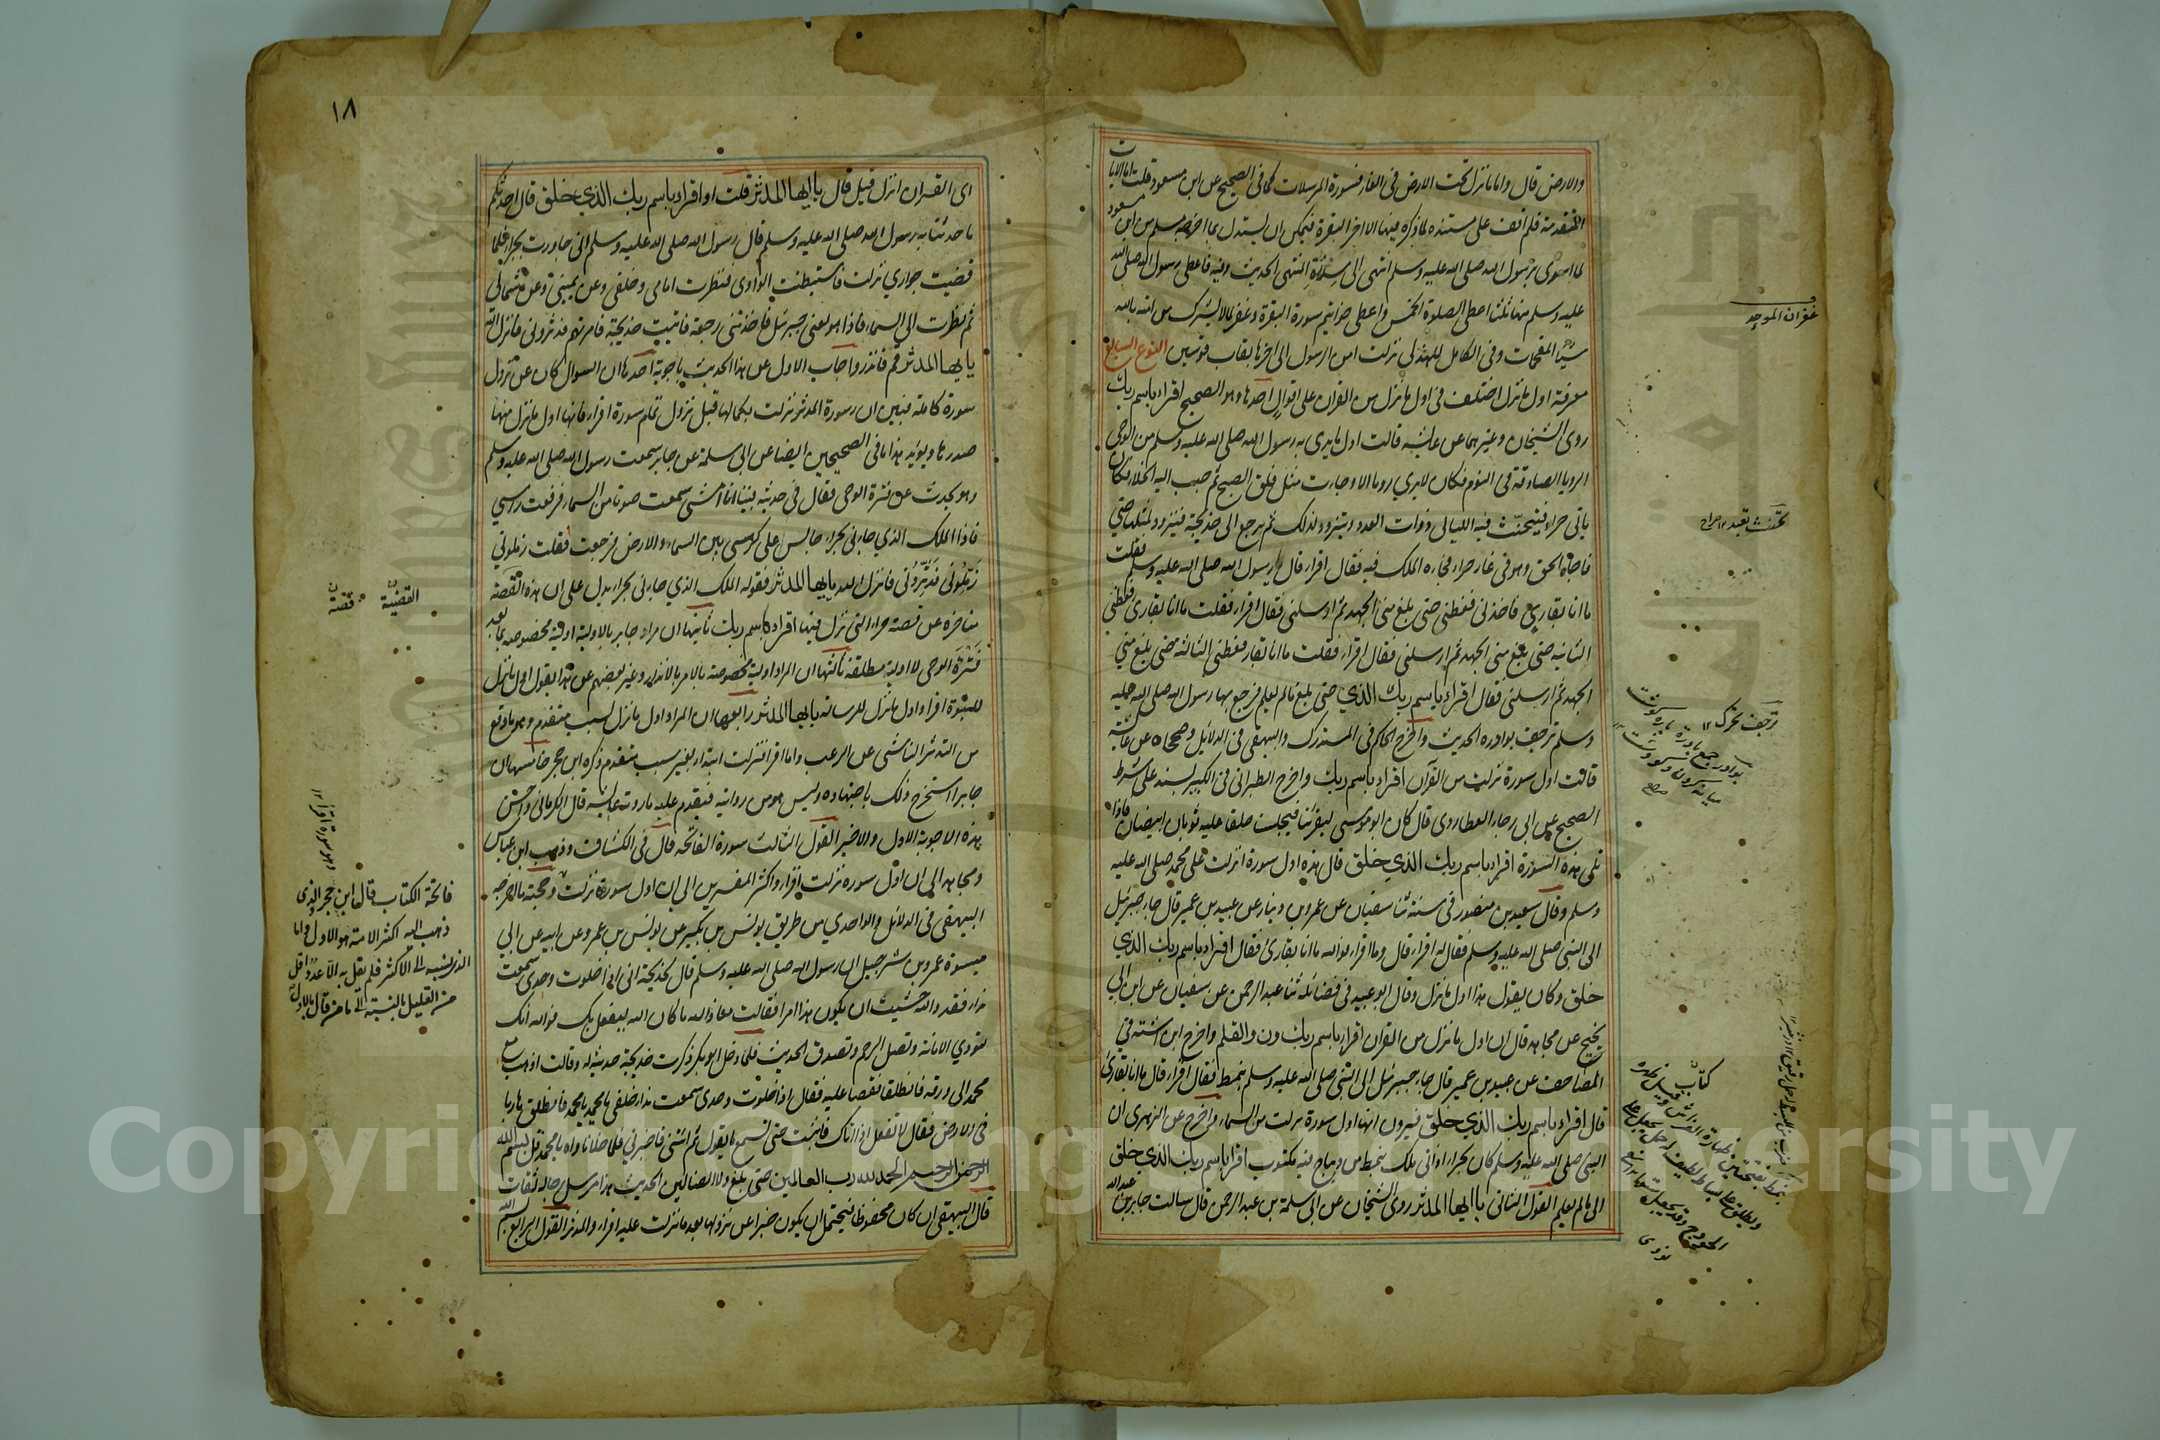 والارض قال واما ما نزل تحت الارض فى الغار فسورة المرسلات كما فى الصحيح عن ابن مسعود قلت اما الآيات
المتقدمة فلم اقف على مستند لما ذكره فيها الا اخر البقرة فيمكن ان يستدل بما اخرجه مسلم عن ابن مسعود
لما اسرى برسول الله صلى الله عليه وسلم انتهى الى سدرة المنتهى الحديث وفيه فاعطى رسول الله صلى الله
عليه وسلم منها ثلثا اعطى الصلوة الخمس واعطى خواتيم سورة البقرة وغفر لمن لا يشرك من امته بالله
شيئا المقحمات وفى الكامل للهذلى نزلت امن الرسول الى اخرها بقاب قوسين النوع السابع
معرفة اول ما نزل اختلف فى اول ما نزل من القران على اقوال احدها وهو الصحيح اقراء باسم ربك
روى الشيخان وغيرهما عن عائشة قالت اول ما بدى به رسول الله صلى الله عليه وسلم من الوحى
الرويا الصادقة فى النوم فكان لا يرى رويا الا وجاءت مثل فلق الصبح ثم حبب اليه الخلاء فكان
ياتى حراء فيتحنث فيه الليالى ذوات العدد ويتزود لذلك ثم يرجع الى خديجة فيتزود لمثلها حتى
فاجاه الحق وهو فى غار حراء فجاءه الملك فيه فقال اقراء قال رسول الله صلى الله عليه وسلم فقلت
ما انا بقارى فاخذنى فغطنى حتى بلغ منى الجهد ثم ارسلنى فقال اقراء فقلت ما انا بقارى فغطنى
الثانية حتى بلغ منى الجهد ثم ارسلنى فقال اقراء فقلت ما انا بقارى فغطنى الثالثة حتى بلغ منى
الجهد ثم ارسلنى فقال اقراء باسم ربك الذي حتى بلغ ما لم يعلم فرجع بها رسول الله صلى الله عليه
وسلم ترجف بوادره الحديث واخرج الحاكم فى المستدرك والبيهقى فى الدلائل وصححاه عن عائشة
قالت اول سورة نزلت من القرآن اقراء باسم ربك واخرج الطبرانى فى الكبير بسند على شرط
الصحيح عن ابى رجاء العطاردى قال كان ابو موسى يقرئنا فيجلسنا حلقا عليه ثوبان ابيضان فاذا
تلى هذه السورة اقراء باسم ربك الذي خلق قال هذه اول سورة انزلت على محمد صلى الله عليه
وسلم وقال سعيد بن منصور فى سننه ثنا سفيان عن عمرو بن دينار عن عبيد بن عمير قال جاء جبرئيل
الى النبى صلى الله عليه وسلم فقال له اقراء قال وما اقراء فوالله ما انا بقارئ فقال اقراء باسم ربك الذي
خلق وكان يقول هذا اول ما نزل وقال ابو عبيد فى فضائله ثنا عبد الرحمن عن سفيان عن ابن ابي
نجيح عن مجاهد قال ان اول ما نزل من القران اقراء باسم ربك ون والقلم واخرج ابن اشته فى
المصاحف عن عبيد بن عمير قال جاء جبرئيل الى النبى صلى الله عليه وسلم بنمط فقال اقراء قال ما انا بقارئ
قال اقراء باسم ربك الذي خلق فيرون انها اول سورة نزلت من السماء واخرج عن الزهرى ان
النبى صلى الله عليه وسلم كان بحراء اذ اتى ملك بنمط من ديباج فيه مكتوب اقرا باسم ربك الذي خلق
الى ما لم يعلم القول الثانى يا ايها المدثر روى الشيخان عن ابى سلمة بن عبد الرحمن قال سالت جابر بن عبد الله
غفران الموحد
تحنث تعبد صراح
ترجف تحرك ١٢
بوادر جمع بادرة
١٨
اى القران انزل قبل قال يا ايها المدثر قلت او اقراء باسم ربك الذي خلق قال احدثكم
ما حدثنا به رسول الله صلى الله عليه وسلم قال رسول الله صلى الله عليه وسلم انى جاورت بحراء فلما
قضيت جواري نزلت فاستبطنت الوادى فنظرت امامى وخلفى وعن يمينى وعن شمالى
ثم نظرت الى السماء فاذا هو يعنى جبرئيل فاخذتنى رجفة فاتيت خديجة فامرتهم فدثرونى فانزل الله
يا يها المدثر قم فانذر واجاب الاول عن هذا الحديث باجوبة احدها ان السوال كان عن نزول
سورة كاملة فبين ان سورة المدثر نزلت بكمالها قبل نزول تمام سورة اقراء فانها اول ما نزل منها
صدرها ويؤيد هذا ما فى الصحيحين ايضا عن ابى سلمة عن جابر سمعت رسول الله صلى الله عليه وسلم
وهو يحدث عن فترة الوحى فقال فى حديثه بينا انا امشى سمعت صوتا من السماء فرفعت راسي
فاذا الملك الذي جاءنى بحراء جالس على كرسى بين السماء والارض فرجعت فقلت زملونى
زملونى فدثرونى فانزل الله يا ايها المدثر فقوله الملك الذي جاءنى بحراء يدل على ان هذه القصة
متاخرة عن قصة حراء التى نزل فيها اقراء باسم ربك ثانيها ان مراد جابر بالاولية اولية مخصوصة بما بعد
فترة الوحى لا اولية مطلقة ثالثها ان المراد اولية مخصوصة بالامر بالانذار وعبر بعضهم عن هذا بقوله اول ما نزل
للنبوة اقراء واول ما نزل للرسالة يا ايها المدثر رابعها ان المراد اول ما نزل بسبب متقدم وهو ما وقع
من التدثر الناشى عن الرعب واما اقرا فنزلت ابتداء بغير سبب متقدم ذكره ابن حجر خامسها ان
جابرا استخرج ذلك باجتهاده وليس هو من روايته فيقدم عليه ما روته عائشة قال الكرمانى واحسن
هذه الاجوبة الاول والاخير القول الثالث سورة الفاتحة قال فى الكشاف وذهب ابن عباس
ومجاهد الى ان اول سورة نزلت اقراء واكثر المفسرين الى ان اول سورة نزلت وحجته ما اخرجه
البيهقى فى الدلائل والواحدي من طريق يونس بن بكير عن يونس بن عمرو عن ابيه عن ابي
ميسرة عمرو بن شرحبيل ان رسول الله صلى الله عليه وسلم قال لخديجة انى اذا خلوت وحدى سمعت
نداء فقد والله خشيت ان يكون هذا امرا فقالت معاذ الله ما كان الله ليفعل بك فوالله انك
لتودي الامانة وتصل الرحم وتصدق الحديث فلما دخل ابو بكر ذكرت خديجة حديثه له وقالت اذهب مع
محمد الى ورقة فانطلقا فقصا عليه فقال اذا خلوت وحدى سمعت نداء خلفى يا محمد يا محمد فانطلق هاربا
فى الارض فقال لا تفعل اذا اتاك فاثبت حتى تسمع ما يقول ثم ائتنى فاخبرنى فلما خلا ناداه يا محمد قل بسم الله
الرحمن الرحيم الحمد لله رب العالمين حتى بلغ ولا الضالين الحديث هذا مرسل رجاله ثقات
قال البيهقى ان كان محفوظا فيحتمل ان يكون خبرا عن نزولها بعد ما نزلت عليه اقراء والمدثر القول الرابع بسم الله
القضية قصة
وهو سورة اقرأ ١٢
فاتحة الكتاب قال ابن حجر الذى
ذهب اليه اكثر الامة هو الاول واما
الذى نسبه الى الاكثر فلم يقل به الا عدد اقل
من القليل بالنسبة الى من قال بالاول
Copyright © King Saud University